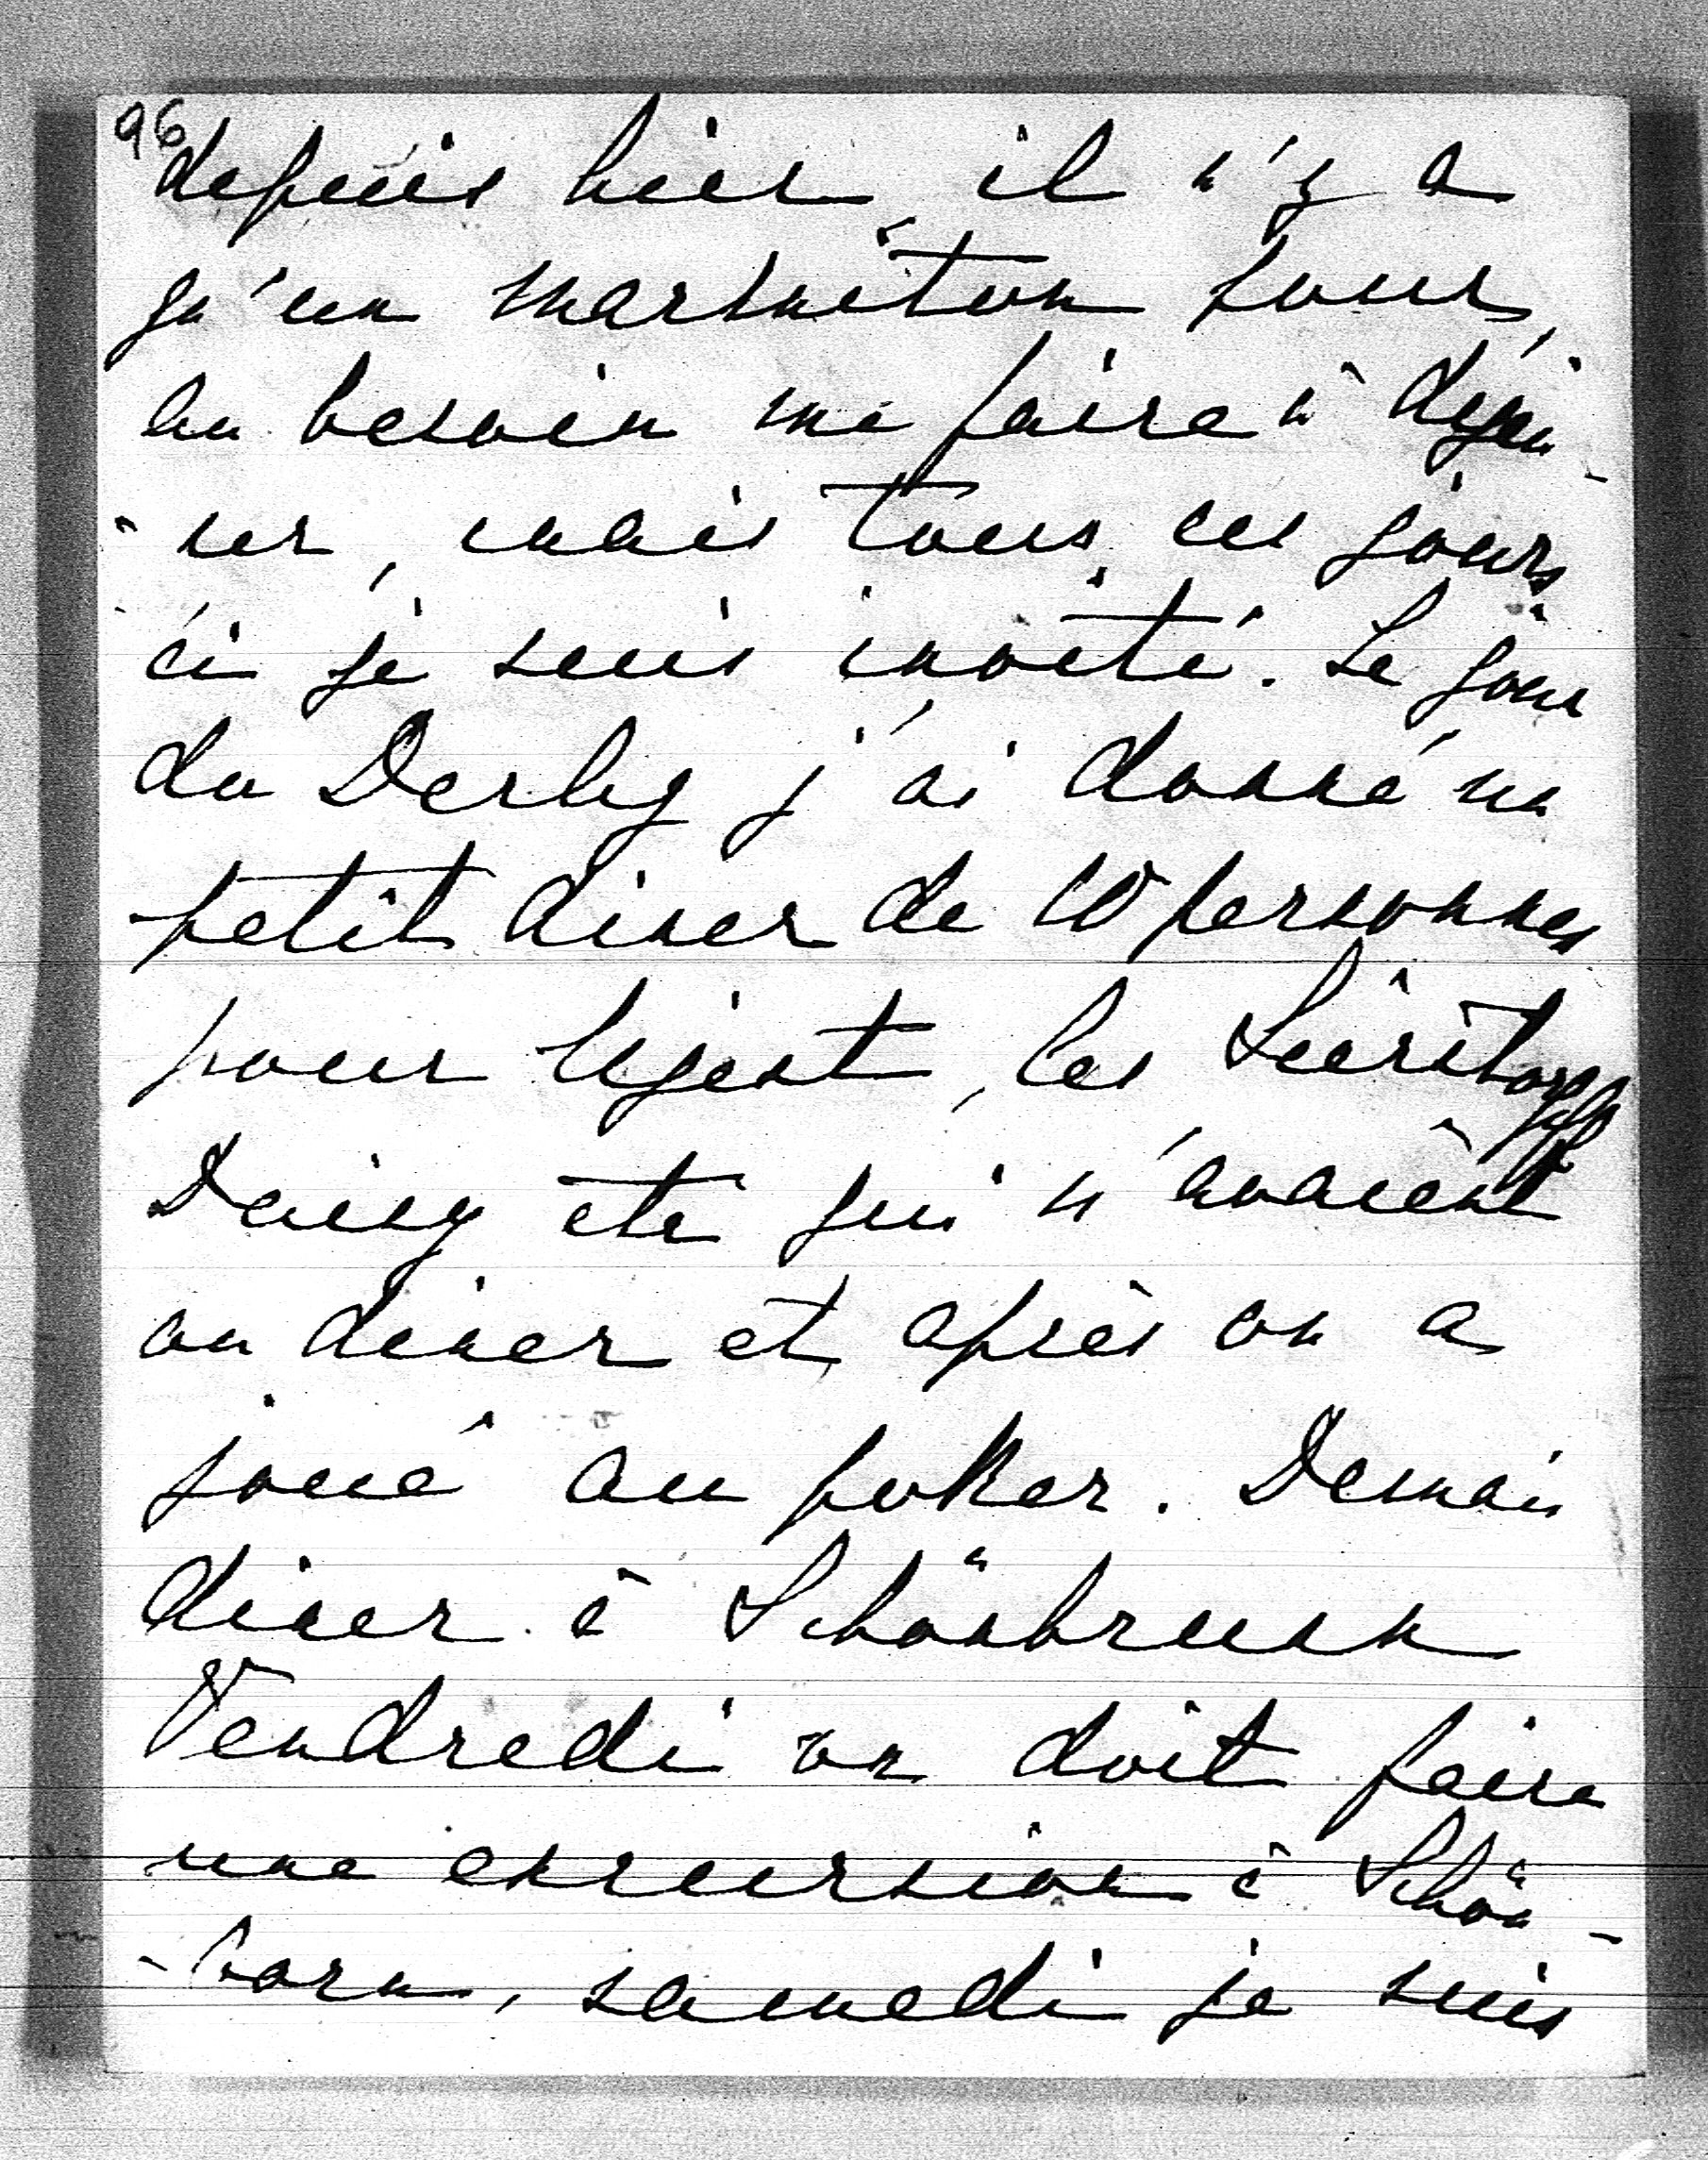 96
depuis hier, il n'y a
qu'un marmiton pour,
au besoin me faire à déjeu-
-ner, mais tous ces jours
ci je suis invité. Le jour
du Derby j'ai donné un
petit diner de 10 personnes
pour Ugest, les
Daisy etc qui n'avaient
au diner et après on a
joué au poker. Demain
diner à Schönbrunn
Vendredi on doit faire
une excursion à Schön-
-born, samedi je suis